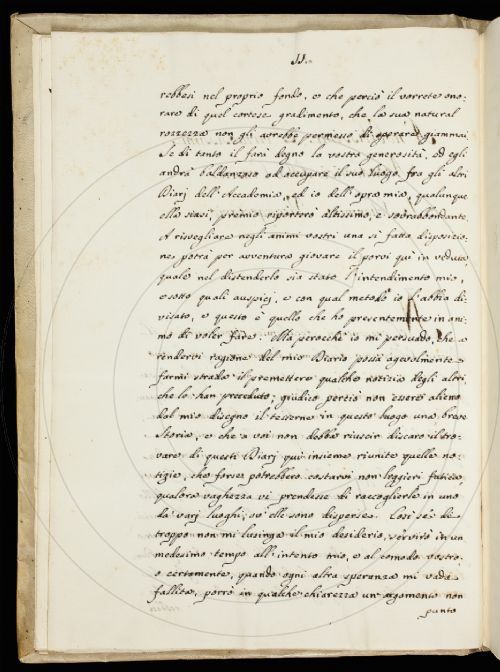 II.
rebbesi nel proprio fondo, e che perciò il vorrete ono-
rare di quel cortese gradimento, che la sua natural
rozzezza non gli avrebbe permesso di sperare giammai.
Se di tanto il farà degno la vostra generosità, ed egli
andrà baldanzoso ad occupare il suo luogo fra gli altri
Diarj dell'Accademia, ed io dell'opra mia, qualunque
ella siasi, premio riporterò altissimo, e sobrabbondante.
A risvegliare negli animi vostri una sì fatta disposizio-
ne potrà per avventura giovare il porvi quì in veduta
quale nel distenderlo sia stato l'intendimento mio,
e sotto quali auspicj, e con qual metodo io l'abbia di-
visato, e questo è quello che ho presentemente in ani-
mo di voler fare. Ma perocchè io mi persuado, che a
rendervi ragione del mio Diario possa agevolmente
farmi strada il premettere qualche notizia degli altri,
che lo han preceduto; giudico perciò non essere alieno
dal mio disegno il tesserne in questo luogo una breve
Storia, e che a voi non debba riuscir discaro il tro-
vare di questi Diarj quì insieme riunite quelle no-
tizie, che forse potrebbero costarvi non leggieri fatica
qualora vaghezza vi prendesse di raccoglierle in uno
da varj luoghi, ov'elle sono disperse. Così se di
troppo non mi lusinga il mio desiderio, servirò in un
medesimo tempo all'intento mio, e al comodo vostro,
o certamente, quando ogni altra speranza mi vada
fallita, porrò in qualche chiarezza un argomento non
punto